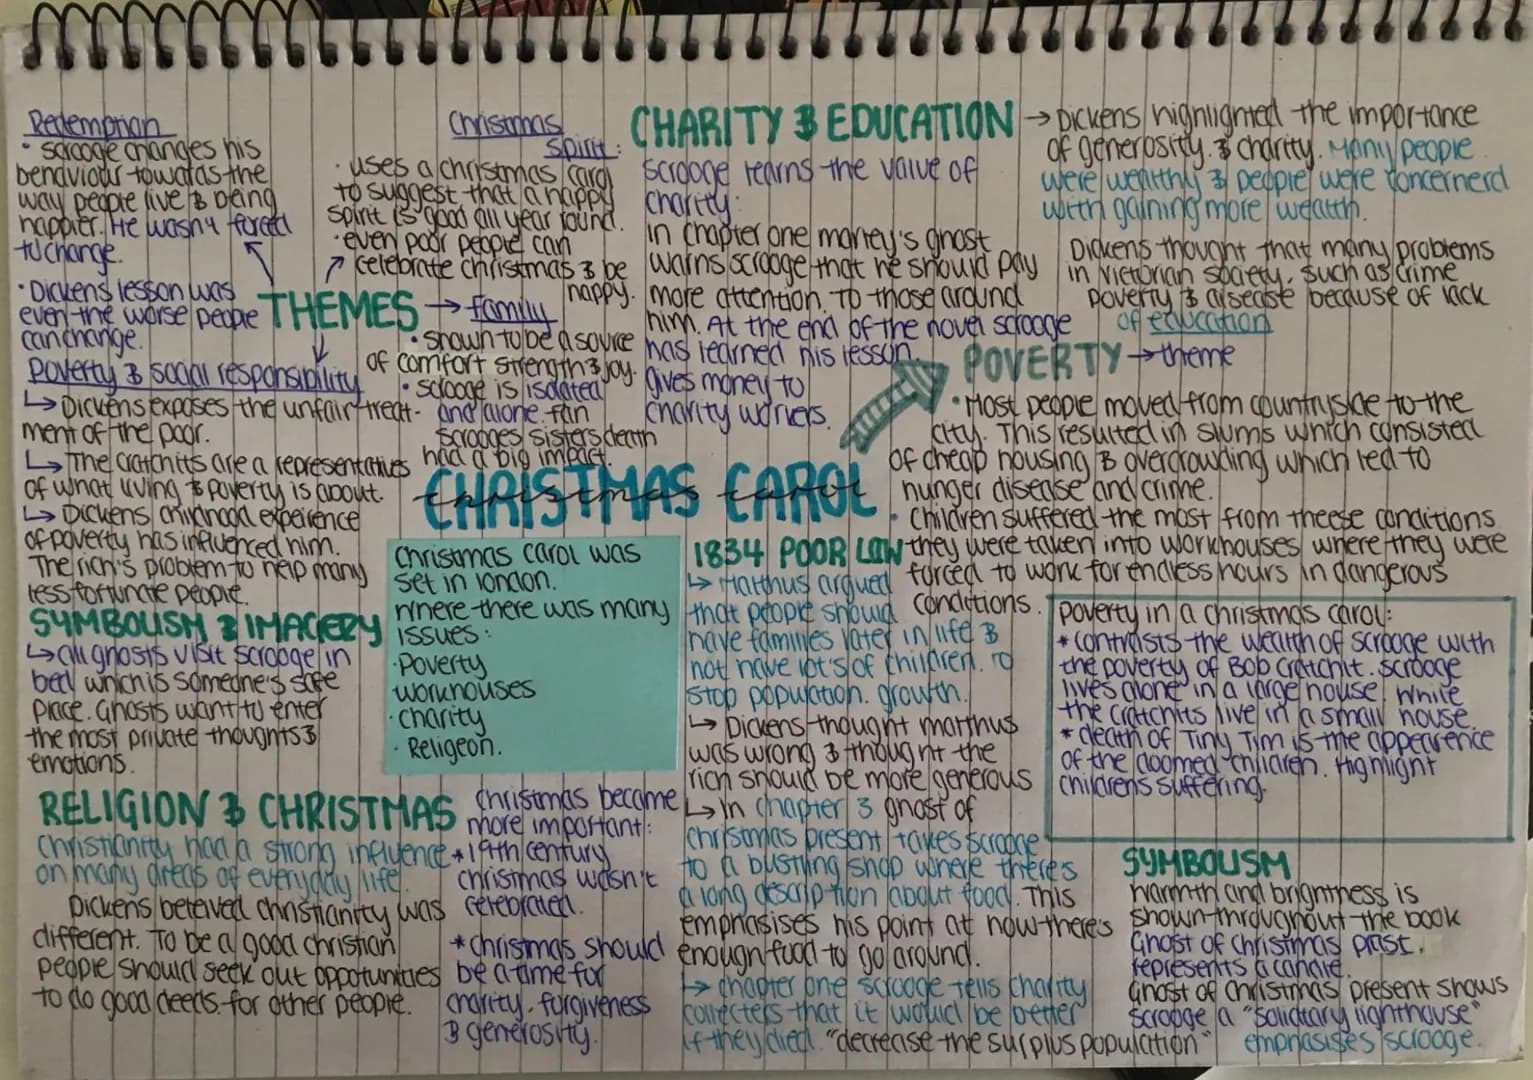 Redemption
· scrooge changes his
behaviour towards the
way people live & being
happier. He wasn't forced
to change.
· Dickens lesson was
even the worse people
can change.
THEMES
Christmas
Spirit:
· uses a christmas carol
to suggest that a happy
spirit is good all year round.
· even poor people can
celebrate christmas & be
happy.
→ family
· shown to be a source
of comfort strength & joy.
· scrooge is isolated
and alone. fan
scrooges sisters death
had a big impact.
Poverty & social responsibility
↳ Dickens exposes the unfair treat-
ment of the poor.
↳ The cratchits are a representatives
of what living & poverty is about.
↳ Dickens childhood experience
of poverty has influenced him.
The rich's problem to help many
less fortunate people.
CHARITY & EDUCATION
scrooge learns the value of
charity:
in chapter one marley's ghost
warns scrooge that he should pay
more attention to those around
him. At the end of the novel scrooge
has learned his lesson.
gives money to
charity workers.
→ Dickens highlighted the importance
of generosity & charity. Many people
were wealthy & people were concernerd
with gaining more wealth.
Dickens thought that many problems
in victorian society. such as crime
poverty & disease because of lack
of education
POVERTY → theme
· Most people moved from countryside to the
city. This resulted in slums which consisted
of cheap housing & overcrowding which led to
hunger disease and crime.
· children suffered the most from theese conditions
they were taken into workhouses where they were
forced to work for endless hours in dangerous
conditions.
CHRISTMAS CAROL
christmas carol
christmas carol was
set in london.
where there was many
issues:
· Poverty
workhouses
· charity
· Religeon.
1834 POOR LAW
↳ Malthus argued
that people should
have families later in life &
not have lot's of children. To
stop population growth.
↳ Dickens thought malthus
was wrong & thought the
rich should be more generous
↳ In chapter 3 ghost of
christmas present takes scrooge
to a bustling shop where there's
a long description about food. This
emphasises his point at how there's
enough food to go around.
↳ chapter one scrooge tells charity
collecters that it would be better
if they died. "decrease the surplus population"
poverty in a christmas carol:
* contrasts the wealth of scrooge with
the poverty of Bob cratchit. scrooge
lives alone in a large house while
the cratchits live in a small house.
* death of Tiny Tim is the appearence
of the doomed children. Highlight
childrens suffering.
SYMBOLISM & IMAGERY
↳ all ghosts visit scrooge in
bed which is someone's safe
place. Ghosts want to enter
the most private thoughts &
emotions.
RELIGION & CHRISTMAS
christianity had a strong influence
on many areas of everyday life.
Dickens beleived christianity was
different. To be a good christian
people should seek out oppotunities
to do good deeds for other people.
christmas became
more important:
* 19th century
christmas wasn't
celebrated.
* christmas should
be a time for
charity. forgiveness
& generosity.
SYMBOLISM
warmth and brightness is
shown throughout the book
Ghost of christmas past.
represents a candle.
Ghost of christmas present shows
scrooge a "soliditary lighthouse"
emphasises scrooge.